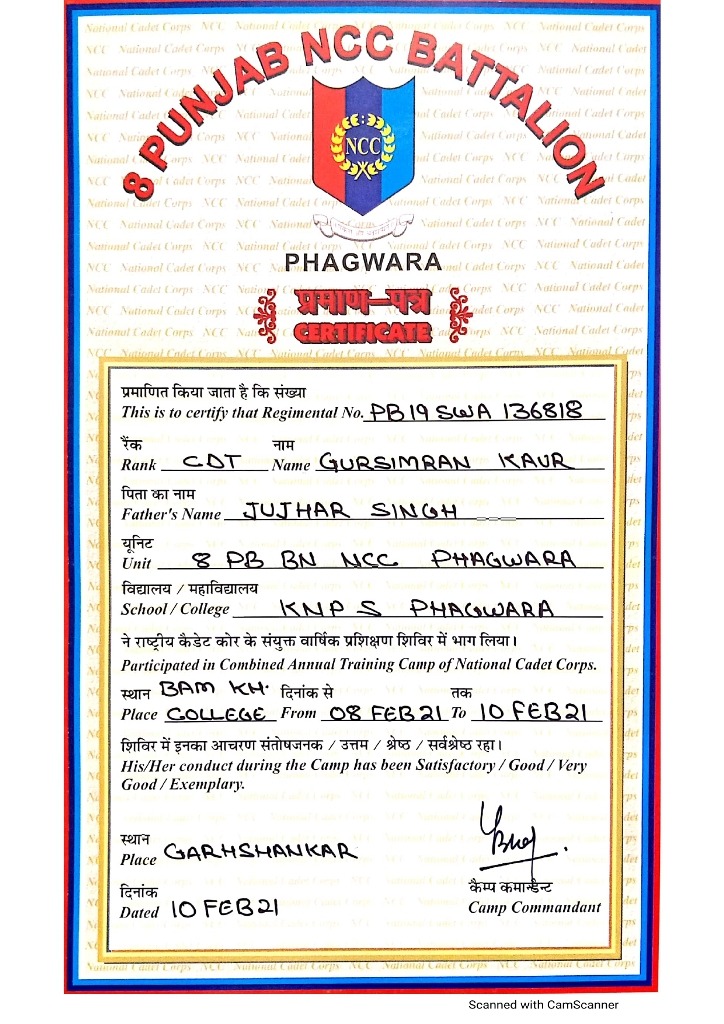 8 PUNJAB NCC BATTALION
NCC
PHAGWARA
प्रमाण—पत्र
CERTIFICATE
प्रमाणित किया जाता है कि संख्या
This is to certify that Regimental No. PB19 SWA 136818
रैंक नाम
Rank CDT Name GURSIMRAN KAUR
पिता का नाम
Father's Name JUJHAR SINGH
यूनिट
Unit 8 PB BN NCC PHAGWARA
विद्यालय / महाविद्यालय
School / College KNPS PHAGWARA
ने राष्ट्रीय कैडेट कोर के संयुक्त वार्षिक प्रशिक्षण शिविर में भाग लिया।
Participated in Combined Annual Training Camp of National Cadet Corps.
स्थान BAM KH. दिनांक से तक
Place COLLEGE From 08 FEB 21 To 10 FEB 21
शिविर में इनका आचरण संतोषजनक / उत्तम / श्रेष्ठ / सर्वश्रेष्ठ रहा।
His/Her conduct during the Camp has been Satisfactory / Good / Very
Good / Exemplary.
स्थान
Place GARHSHANKAR
दिनांक
Dated 10 FEB 21
कैम्प कमान्डैन्ट
Camp Commandant
Scanned with CamScanner